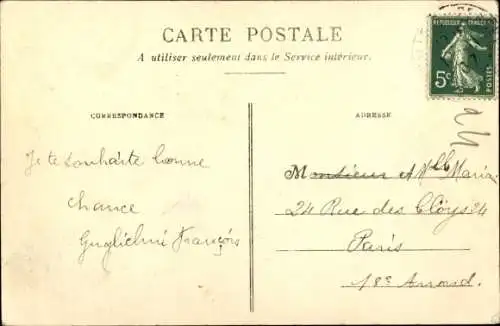 CARTE POSTALE
A utiliser seulement dans le Service intérieur.
REPUBLIQUE FRANÇAISE
5c
POSTES
CORRESPONDANCE
ADRESSE
Je te souhaite bonne
chance
Guglielmi François
Monsieur et Mlle Maria
24 Rue des Cloÿs 24
Paris
18e Arrond.